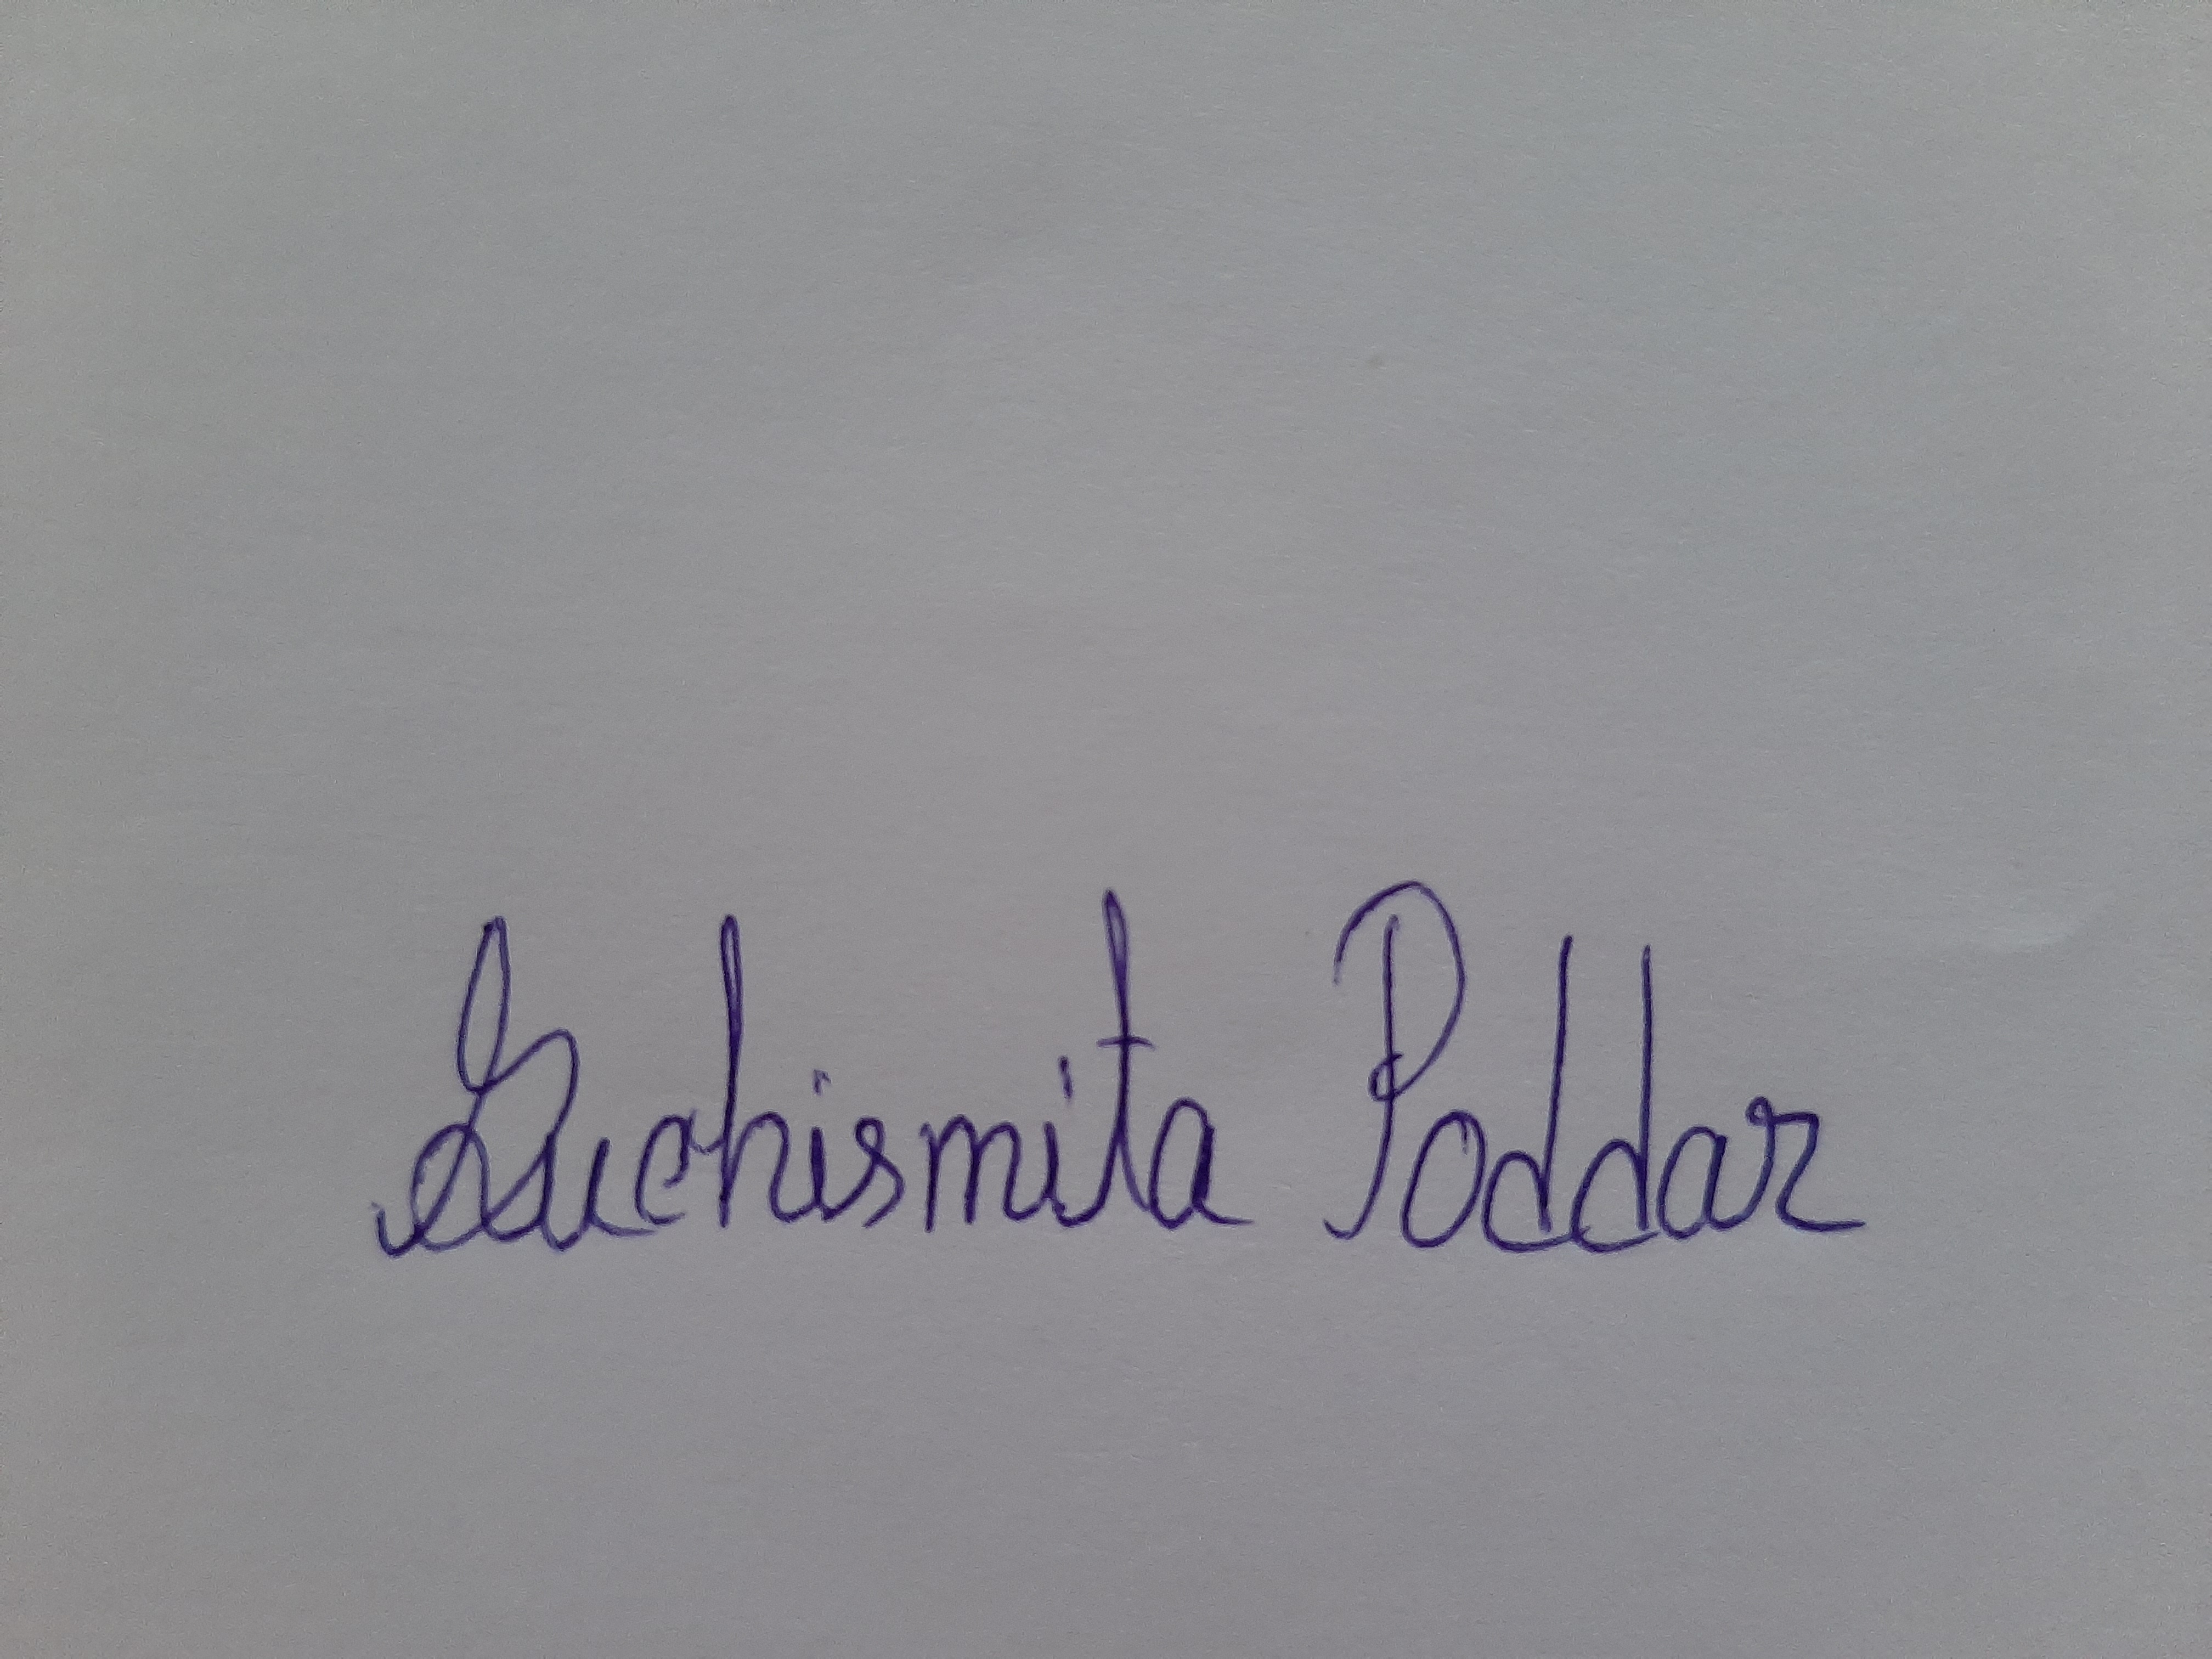 Suchismita Poddar